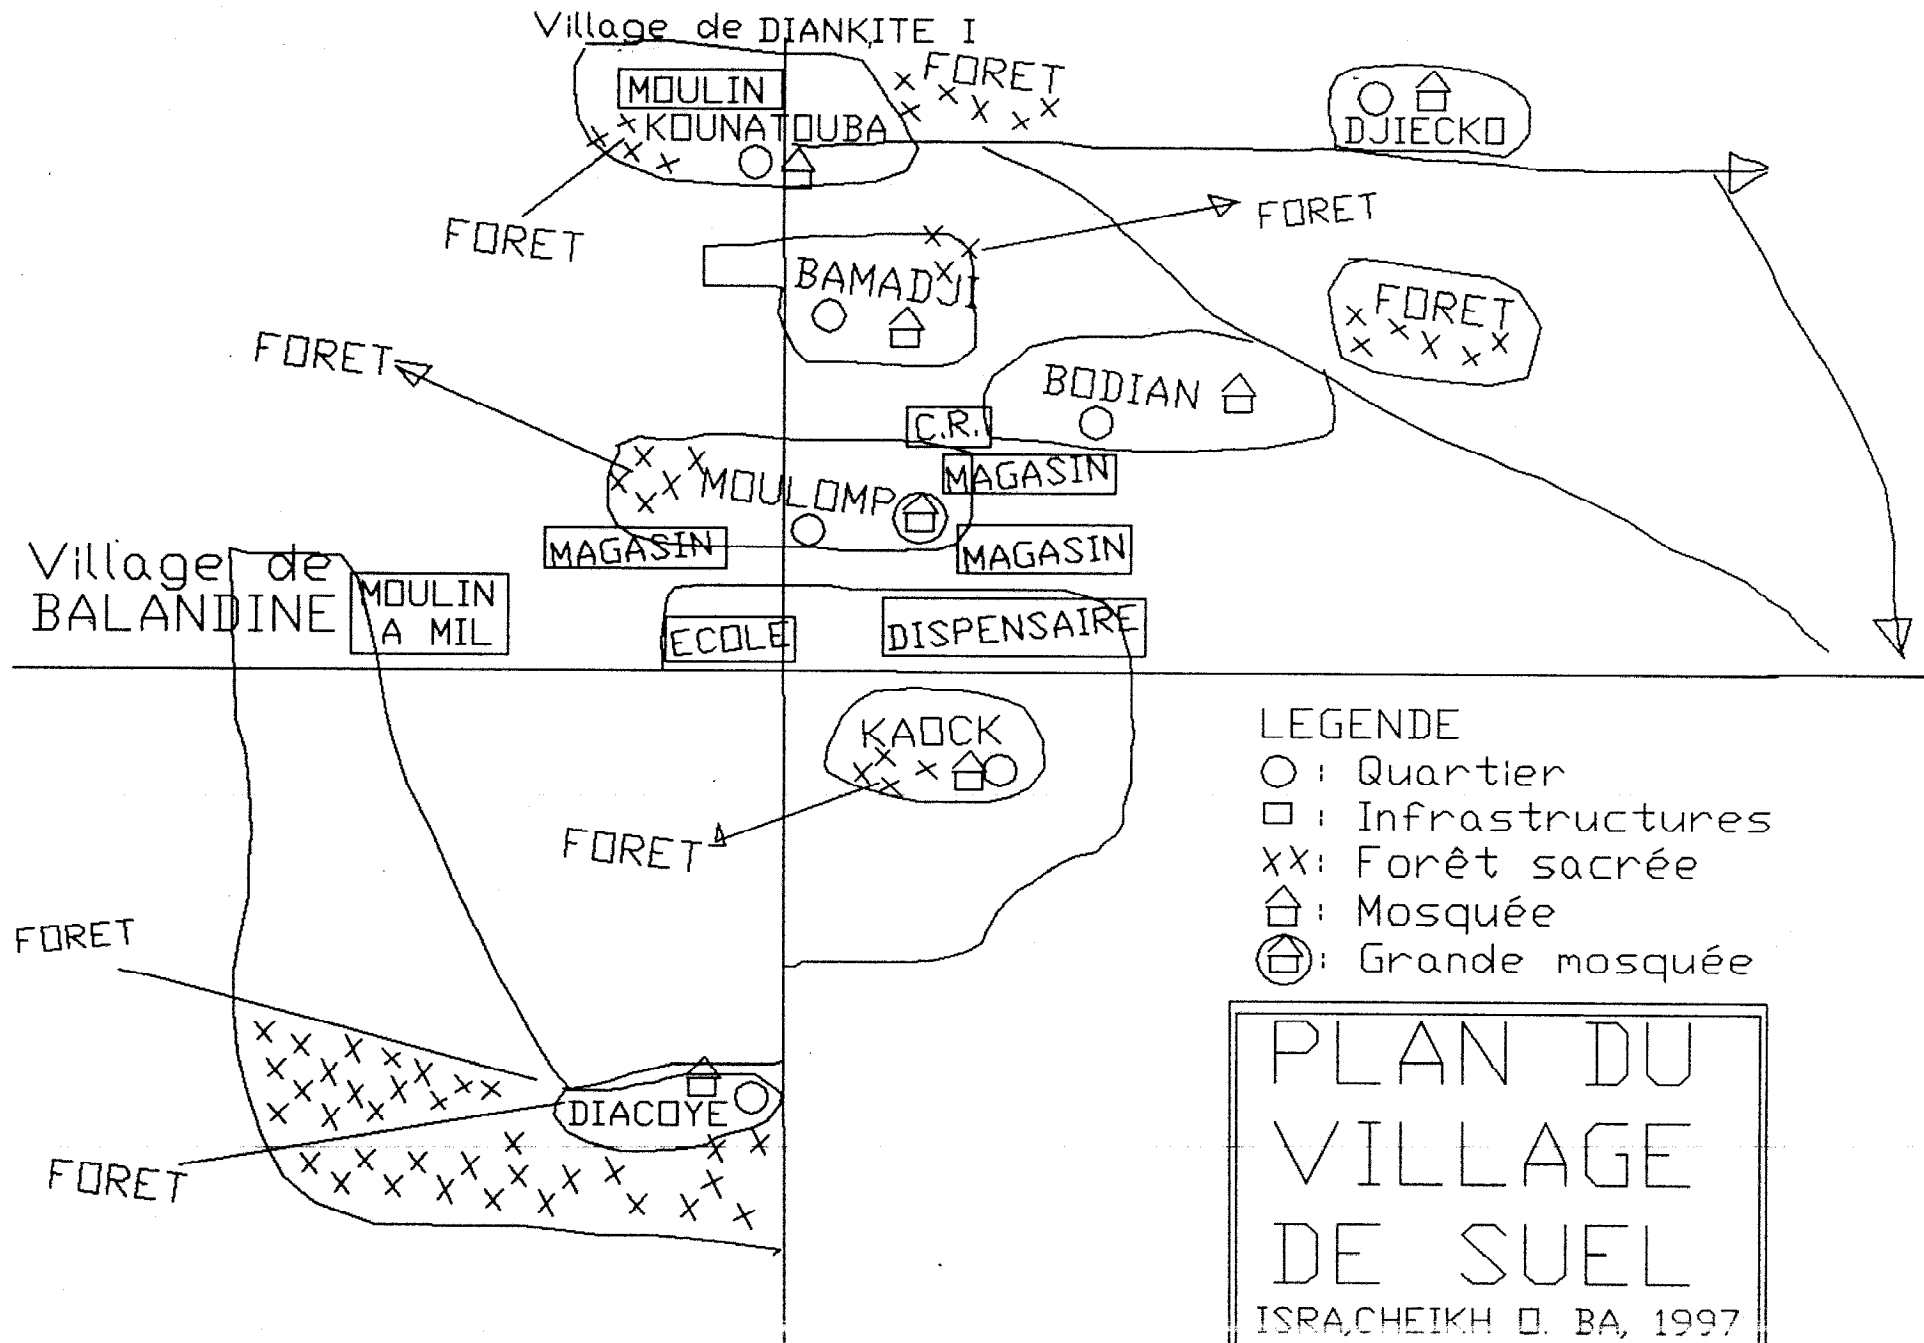 Village de DIANKITE I
MOULIN
FORET
KOUNATOUBA
DJIECKO
FORET
FORET
BAMADJI
FORET
FORET
BODIAN
C.R.
MOULOMP
MAGASIN
MAGASIN
MAGASIN
Village de
BALANDINE
MOULIN
A MIL
ECOLE
DISPENSAIRE
KAOCK
FORET
FORET
DIACOYE
FORET
LEGENDE
: Quartier
: Infrastructures
XX: Forêt sacrée
: Mosquée
: Grande mosquée
PLAN DU
VILLAGE
DE SUEL
ISRA,CHEIKH O. BA, 1997